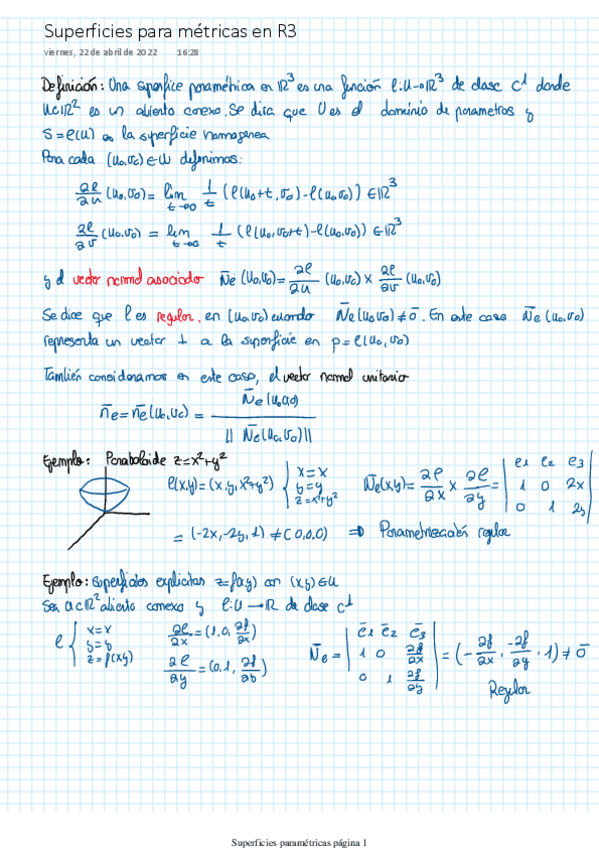 Superficies para métricas en R3
viernes, 22 de abril de 2022 16:28
Definición: Una superfice paramétrica en ℝ³ es una función ℓ:U→ℝ³ de clase C¹ donde
U⊂ℝ² es un abierto conexo. Se dice que U es el dominio de parametros y
S=ℓ(U) es la superficie homogenea
Para cada (u₀,v₀)∈U definimos:
∂ℓ/∂u (u₀,v₀) = lim t→0 1/t (ℓ(u₀+t, v₀)-ℓ(u₀,v₀)) ∈ℝ³
∂ℓ/∂v (u₀,v₀) = lim t→0 1/t (ℓ(u₀,v₀+t)-ℓ(u₀,v₀)) ∈ℝ³
y el vector normal asociado N̄ℓ(u₀,v₀) = ∂ℓ/∂u (u₀,v₀) × ∂ℓ/∂v (u₀,v₀)
Se dice que ℓ es regular, en (u₀,v₀) cuando N̄ℓ(u₀,v₀) ≠ ō. En este caso N̄ℓ(u₀,v₀)
representa un vector ⊥ a la superficie en p=ℓ(u₀,v₀)
También consideramos en este caso, el vector normal unitario
n̄ℓ = n̄ℓ(u₀,v₀) = N̄ℓ(u₀,v₀) / ||N̄ℓ(u₀,v₀)||
Ejemplo: Paraboloide z=x²+y²
ℓ(x,y)=(x,y,x²+y²) { x=x y=y z=x²+y² N̄ℓ(x,y)= ∂ℓ/∂x × ∂ℓ/∂y = | e1 e2 e3 | 1 0 2x | 0 1 2y |
= (-2x,-2y,1) ≠ (0,0,0) ⇒ Parametrización regular
Ejemplo: superficies explícitas z=f(x,y) con (x,y)∈U
Sea U⊂ℝ² abierto conexo y ℓ:U→ℝ de clase C¹
ℓ { x=x y=y z=f(x,y) ∂ℓ/∂x =(1,0,∂f/∂x) ∂ℓ/∂y =(0,1,∂f/∂y) N̄ℓ = | ē1 ē2 ē3 | 1 0 ∂f/∂x | 0 1 ∂f/∂y | = (-∂f/∂x, -∂f/∂y, 1) ≠ ō
Regular
Superficies paramétricas página 1